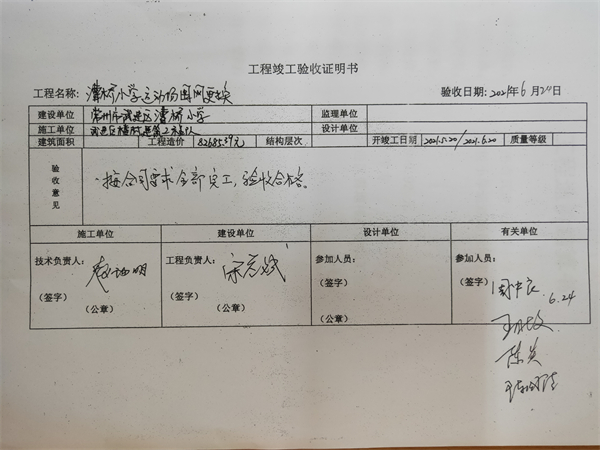 工程竣工验收证明书
工程名称: 漕桥小学运动场围网更换 验收日期: 2021年6月24日
建设单位 常州市武进区漕桥小学 监理单位
施工单位 设计单位
建筑面积 工程造价 82685.39元 结构层次 开竣工日期 2021.5.20/2021.6.20 质量等级
验收意见 按合同要求全部完工,验收合格。
施工单位 建设单位 设计单位 有关单位
技术负责人: 工程负责人: 参加人员: 参加人员:
(签字) (签字) (签字) (签字)
6.24
(公章) (公章) (公章)
陈英